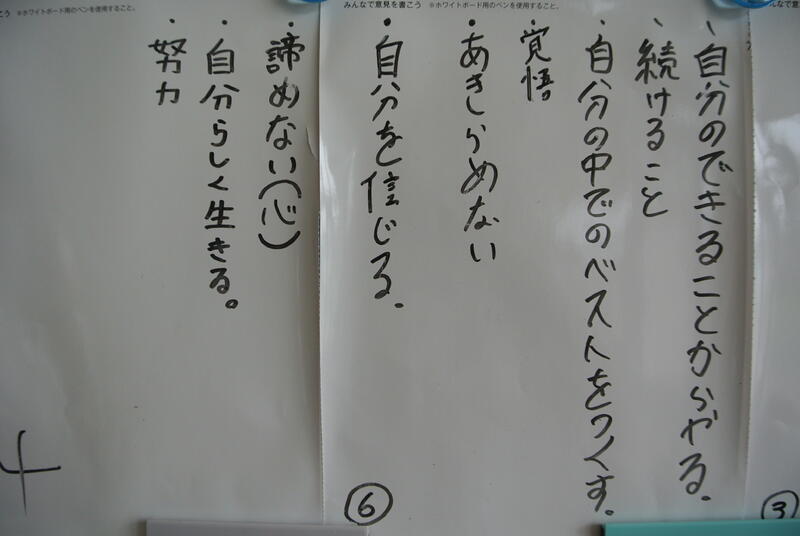 みんなで意見を書こう ※ホワイトボード用のペンを使用すること。
・自分のできることからやる。
・続けること
・自分の中でのベストをつくす。
・覚悟
・あきらめない
・自分を信じる。
⑥
③
こう ※ホワイトボード用のペンを使用すること。
・諦めない(心)
・自分らしく生きる。
・努力